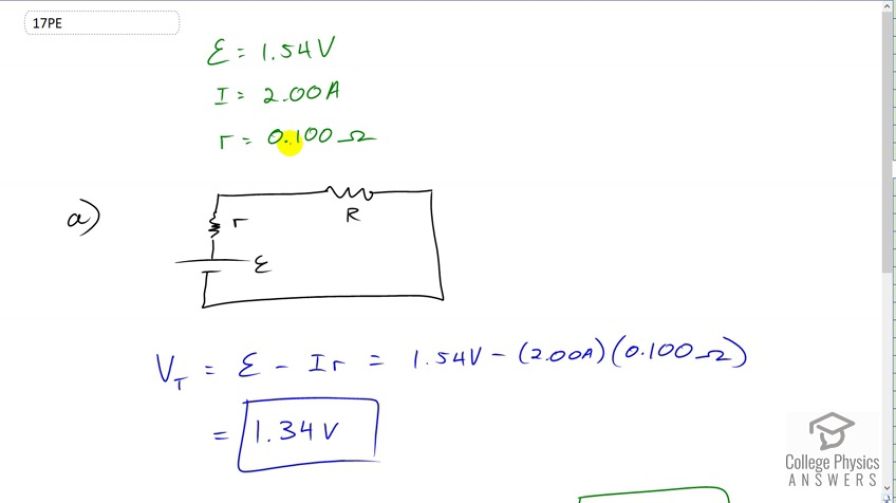 17PE
ε = 1.54V
I = 2.00A
r = 0.100 Ω
a)
r
R
ε
V_T = ε - Ir = 1.54V - (2.00A)(0.100Ω)
= 1.34V
College Physics
ANSWERS